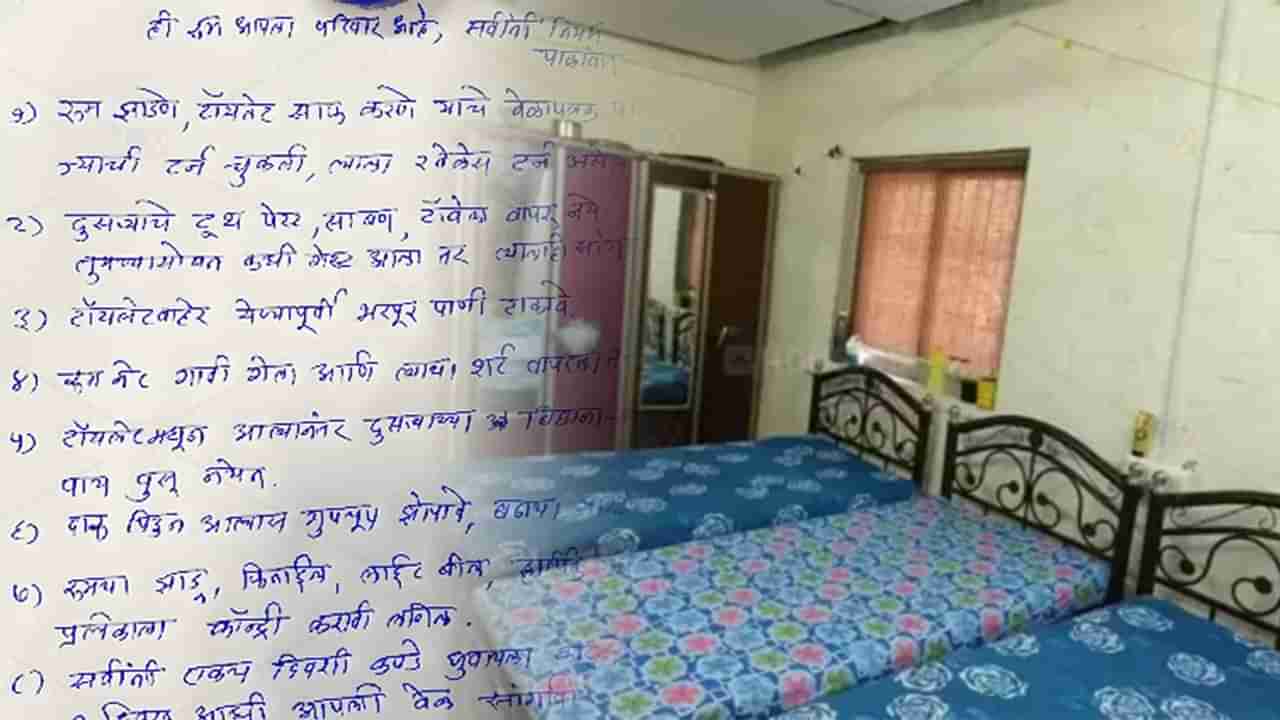 ही रूम आपला परिवार आहे, सर्वांनी नियम
पाळावेत
१) रूम झाडणे, टॉयलेट साफ करणे यांचे वेळापत्रक
ज्याची टर्न चुकली, त्याला २ वेळेस टर्न
२) दुसऱ्याचे टूथ पेस्ट, साबण, टॉवेल वापरू नये
तुमच्यासोबत कधी गेस्ट आला तर त्यालाही
३) टॉयलेटवाटेर येण्यापूर्वी भरपूर पाणी टाकावे.
४) रूम मेट गावी गेला आणि त्याचा शर्ट वापरला
५) टॉयलेटमधून आल्यानंतर दुसऱ्याच्या
पाय पुसू नयेत.
६) दारू पिऊन आल्यास गुपचूप झोपावे,
७) रूमचा झाडू, फिनाईल, लाईट बील,
प्रत्येकाला कॉन्ट्री करावी लागेल.
८) सर्वांनी एकाच दिवशी कपडे धुवायला
आधी आपली वेळ सांगावी